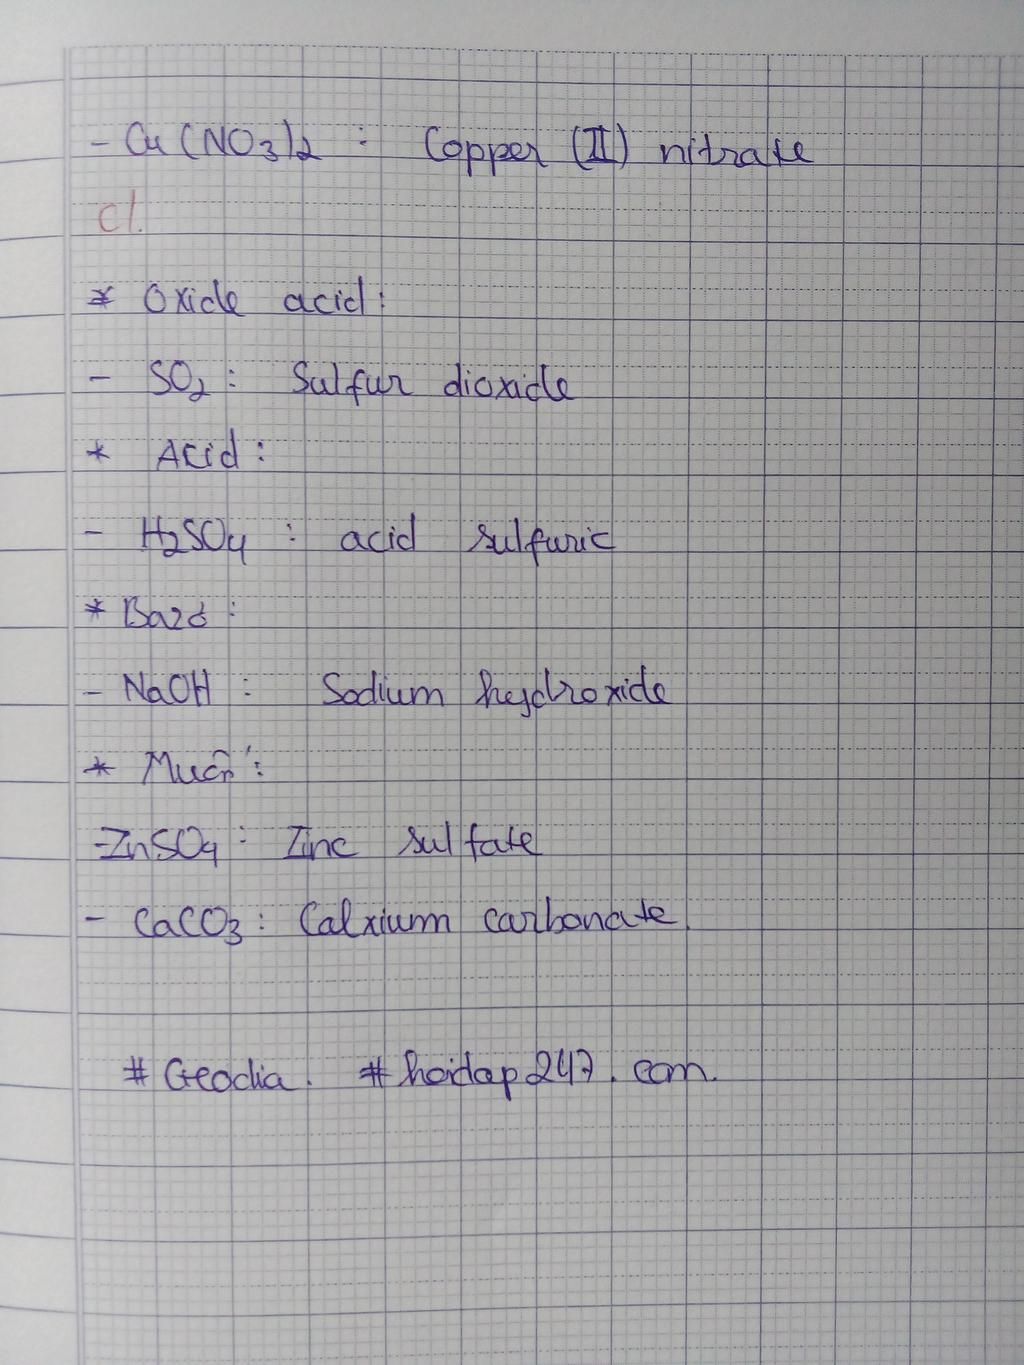 - Cu(NO3)2 : Copper (II) nitrate
c/.
* Oxide acid:
- SO2: Sulfur dioxide
* Acid:
- H2SO4 : acid sulfuric
* Bazơ:
- NaOH : Sodium hydroxide
* Muối:
- ZnSO4: Zinc sulfate
- CaCO3: Calxium carbonate.
# Geodia. # hoidap247.com.